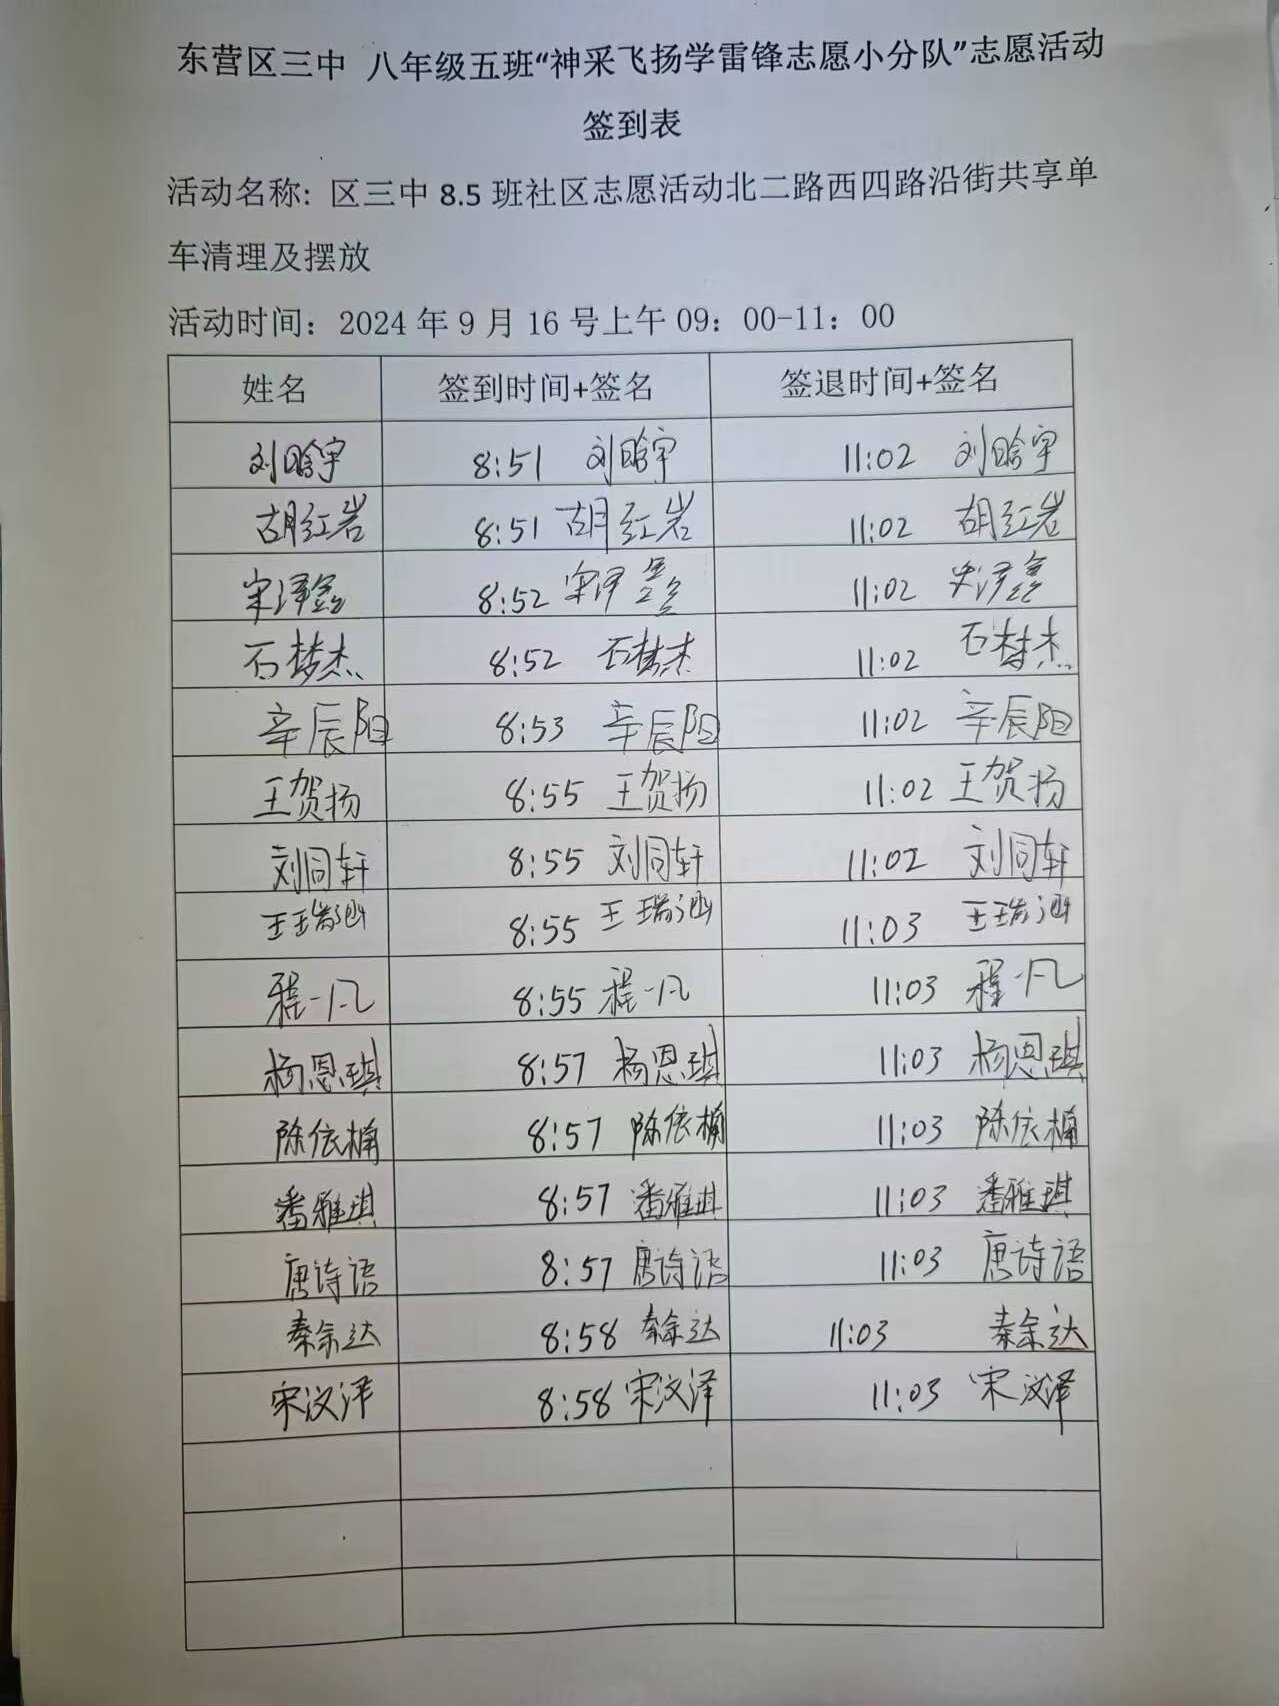 东营区三中 八年级五班“神采飞扬学雷锋志愿小分队”志愿活动
签到表
活动名称: 区三中 8.5 班社区志愿活动北二路西四路沿街共享单
车清理及摆放
活动时间：2024 年 9 月 16 号上午 09：00-11：00
姓名 签到时间+签名 签退时间+签名
刘晗宇 8:51 刘晗宇 11:02 刘晗宇
胡红岩 8:51 胡红岩 11:02 胡红岩
宋泽鑫 8:52 宋泽鑫 11:02 宋泽鑫
石梦杰 8:52 石梦杰 11:02 石梦杰
辛辰阳 8:53 辛辰阳 11:02 辛辰阳
王贺扬 8:55 王贺扬 11:02 王贺扬
刘同轩 8:55 刘同轩 11:02 刘同轩
王瑞涵 8:55 王瑞涵 11:03 王瑞涵
程一凡 8:55 程一凡 11:03 程一凡
杨恩琪 8:57 杨恩琪 11:03 杨恩琪
陈依楠 8:57 陈依楠 11:03 陈依楠
潘雅琪 8:57 潘雅琪 11:03 潘雅琪
唐诗语 8:57 唐诗语 11:03 唐诗语
秦余达 8:58 秦余达 11:03 秦余达
宋汶泽 8:58 宋汶泽 11:03 宋汶泽